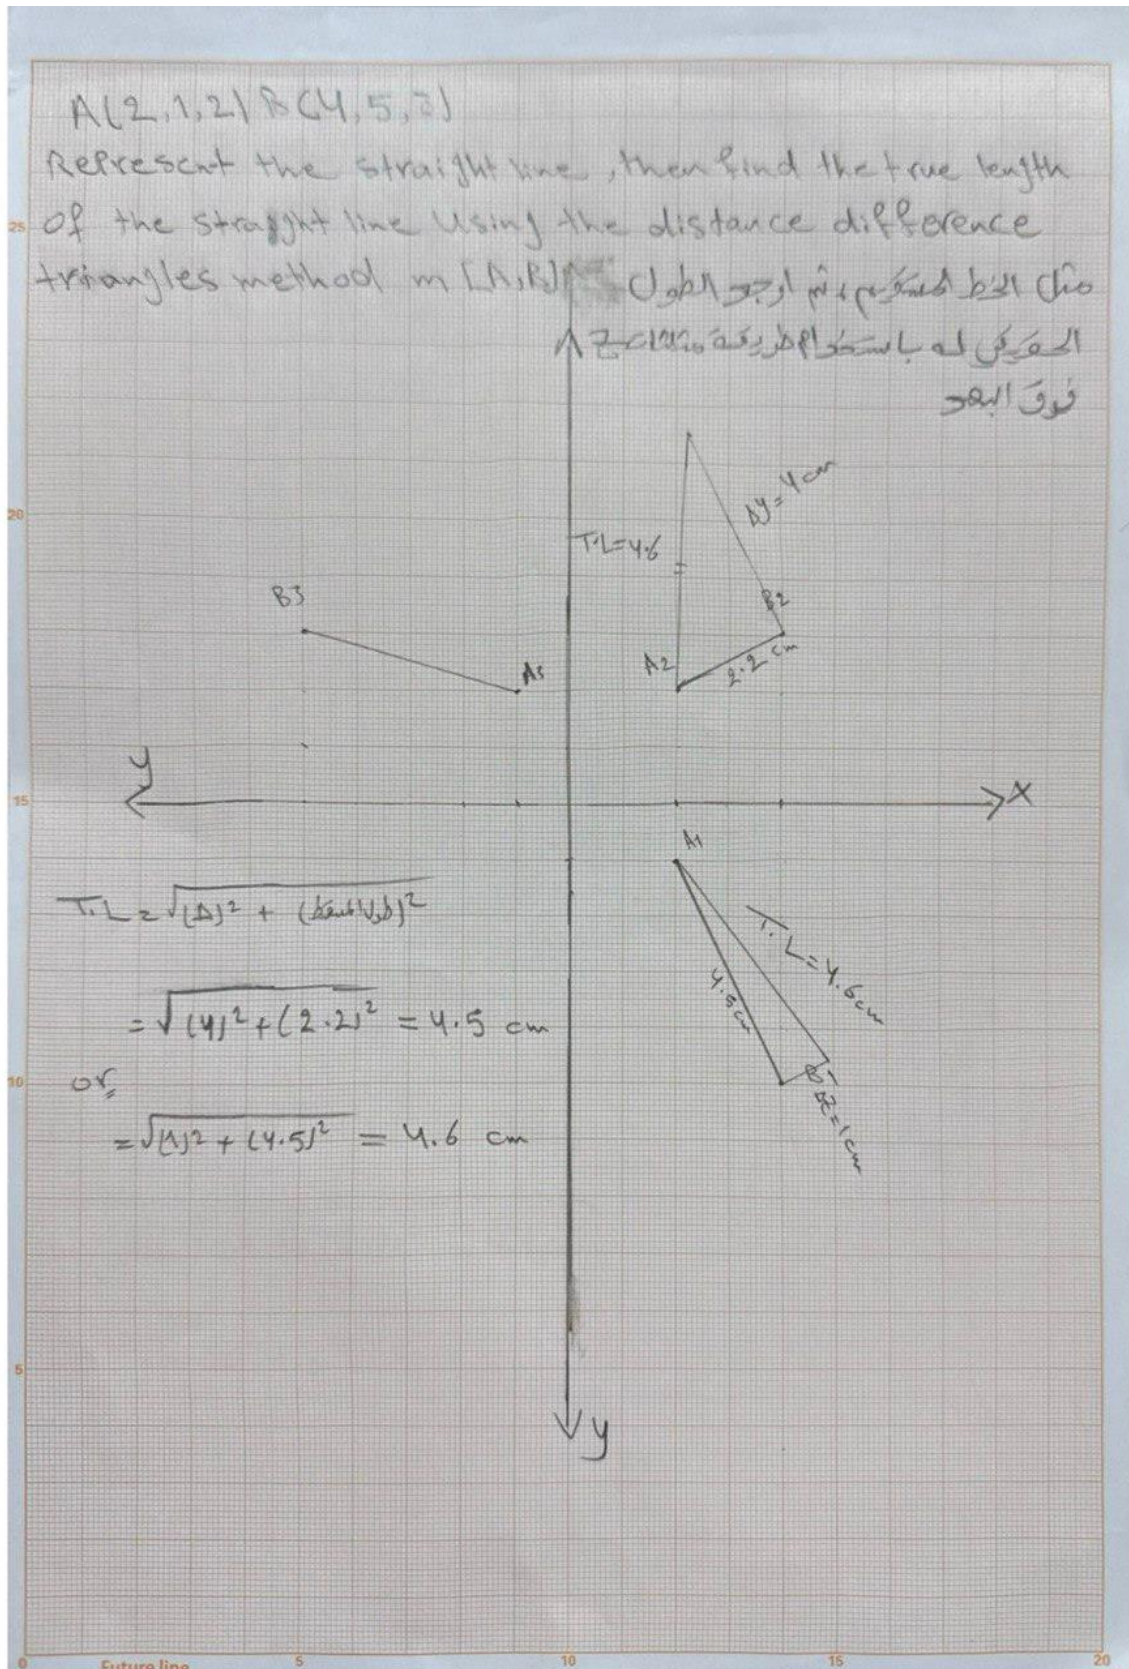 A(2,1,2) B(4,5,3)
Represent the straight line, then find the true length
of the straight line Using the distance difference
triangles method m [A,B] مثل الخط المستقيم، ثم اوجد الطول
الحقيقي له باستخدام طريقة مثلثات
فرق البعد
Z
25
20
15
10
5
0
Δy=4cm
T.L=4.6
B3
B2
A3
A2
2.2 cm
y
X
A1
T.L=√(Δ)² + (طول المسقط)²
T.L=4.6cm
4.5cm
=√(4)²+(2.2)² = 4.5 cm
or,
B1
ΔZ=1cm
=√(1)² + (4.5)² = 4.6 cm
y
Future line
5
10
15
20